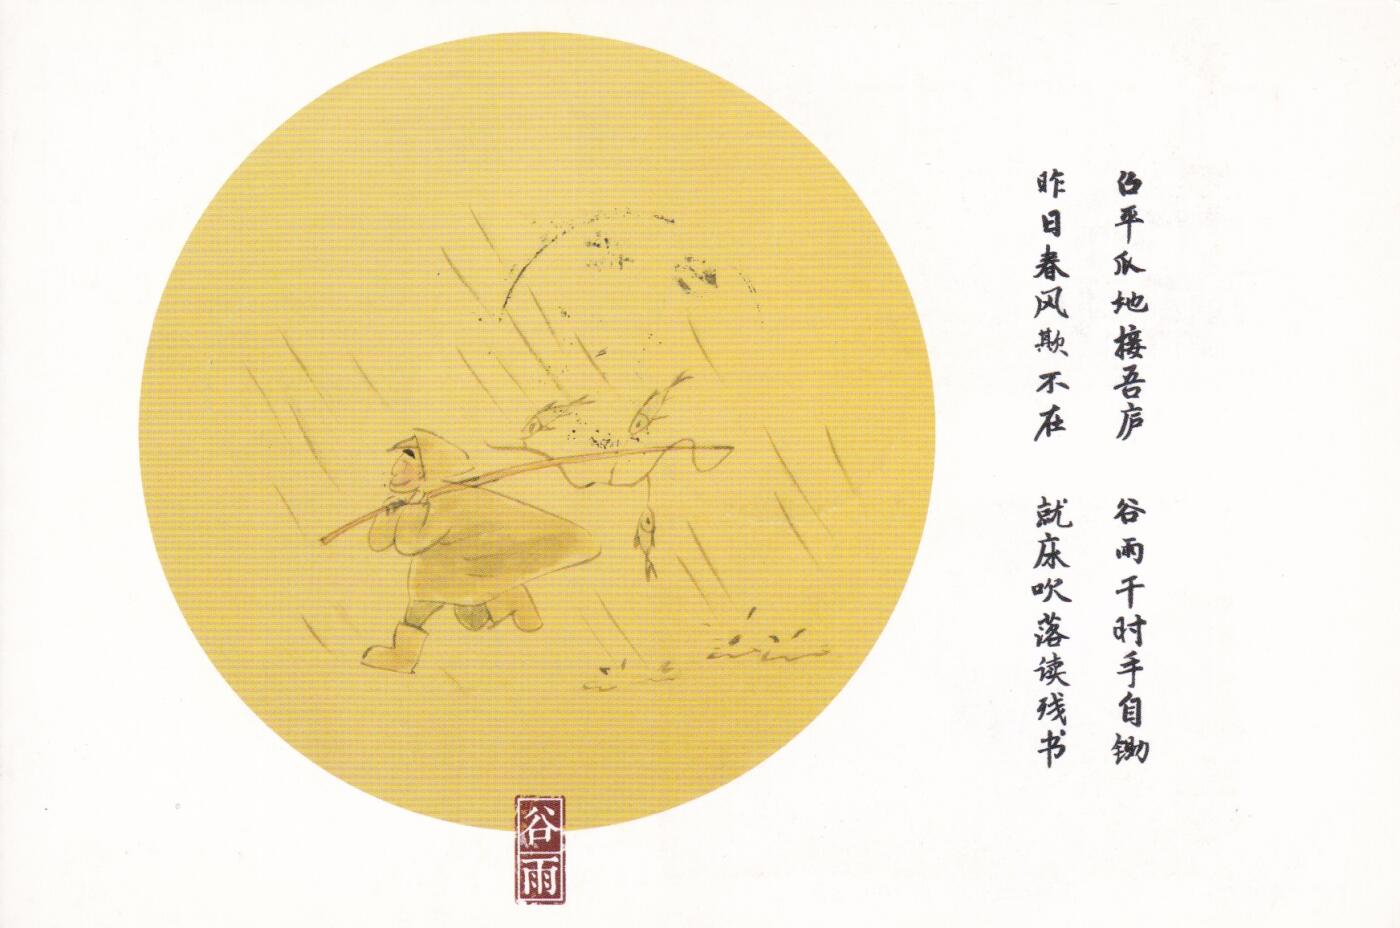 召平瓜地接吾庐 谷雨干时手自锄
昨日春风欺不在 就床吹落读残书
谷雨